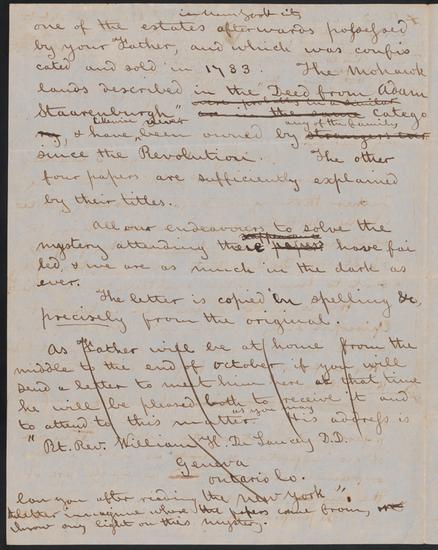 in New York city
one of the estates afterwards possessed
by your Father, and which was confis
cated and sold in 1783. The Mohawk
lands described in the Deed from Adam
Staarenburgh" are in the same catego
ry, & have likewise never been owned by any of the family
since the Revolution. The other
four papers are sufficiently explained
by their titles.
All our endeavours to solve the
mystery attending these papers have fai
led, & we are as much in the dark as
ever.
The letter is copied in spelling &c,
precisely from the original.
As Father will be at home from the
middle to the end of October, if you will
send a letter to meet him here at that time
he will be pleased both to receive it and
to attend to this matter as you may his address is
"Rt. Rev. William H. De Lancey D.D.
Geneva
Ontario Co.
New York"
Can you after reading the
letter imagine where the papers came from, or
throw any light on this mystery.